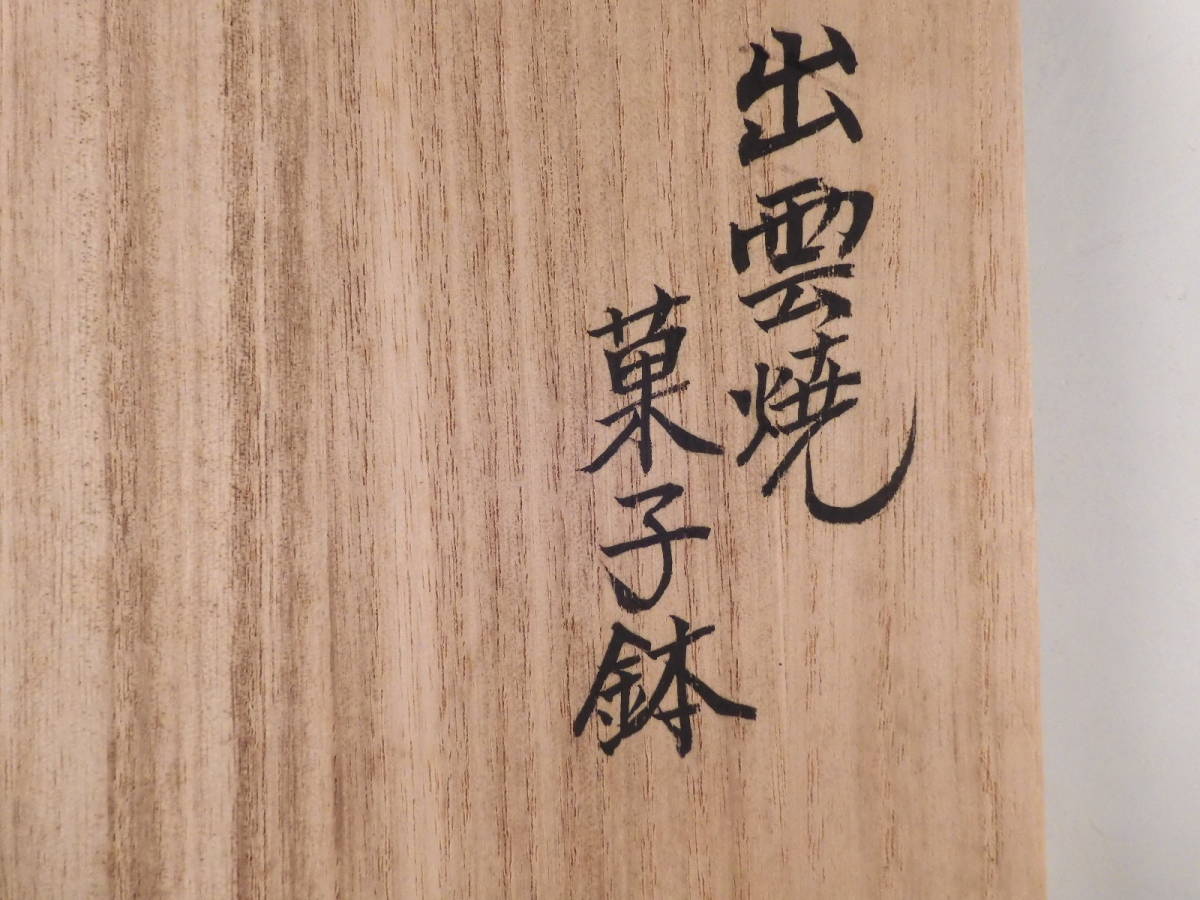 出雲焼
菓子鉢